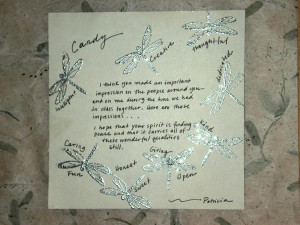 Candy
Creative
thoughtful
I think you made an important
impression on the people around you
and on me during the time we had
in class together. Here are those
impressions....
I hope that your spirit is finding
peace and that it carries all of
these wonderful qualities
still.
kind
Caring
Fun
Honest
Sweet
Giving
Open
Patricia